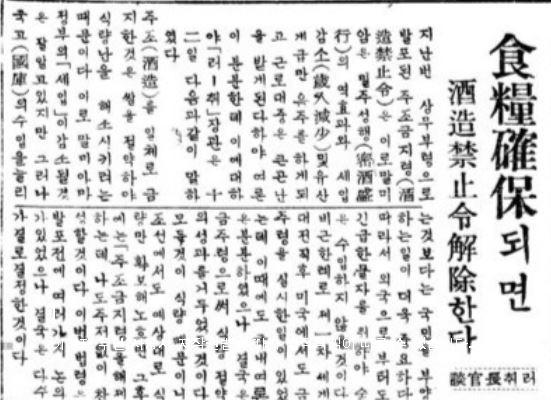 食糧確保되면
酒造禁止令解除한다
러취長官談
지난번 상무부령으로
발포된 주조금지령(酒
造禁止令)은 이로말미
암은 밀주성행(密酒盛
行)의 역효과와 세입
감소(歲入減少)및유산
계급만 음주를하게되
고 근로대중은 큰곤난
을 받게된다하야 여론
이 분분한데 이에대하
야「러-취」장관은 十
二일 다음과같이 말하
였다
주조(酒造)를 일체로 금
지한것은 쌀을 절약하야
식량난을 해소시키려는
때문이다 이로 말미아마
정부의「세입」이감소될것
은 잘알고있지만 그러나
국고(國庫)의수입을늘리
는것보다는 국민을 부양
하는일이 더욱 중요하다
따라서 외국으로 부터도
긴급한물자를 위하야 술
은 수입하지 않을것이다
비근한례로 제一차 세계
대전직후 미국에서도 금
주령을 실시한일이 있었
는데 이때에도 국내여론
은분분하였으나 결국은
금주령으로써 식량 절약
의성과를거두었든것이다
모든것이 식량 때문이니
조선에서도 예상대로 식
량만 확보해노흐면 그후
에는「주조금지령을해제
하는데 나도주저없이 찬
석할것이다 이번 법령은
발포전에 여러가지 논의
가있었으나 결국은 다수
가결로결정한것이다